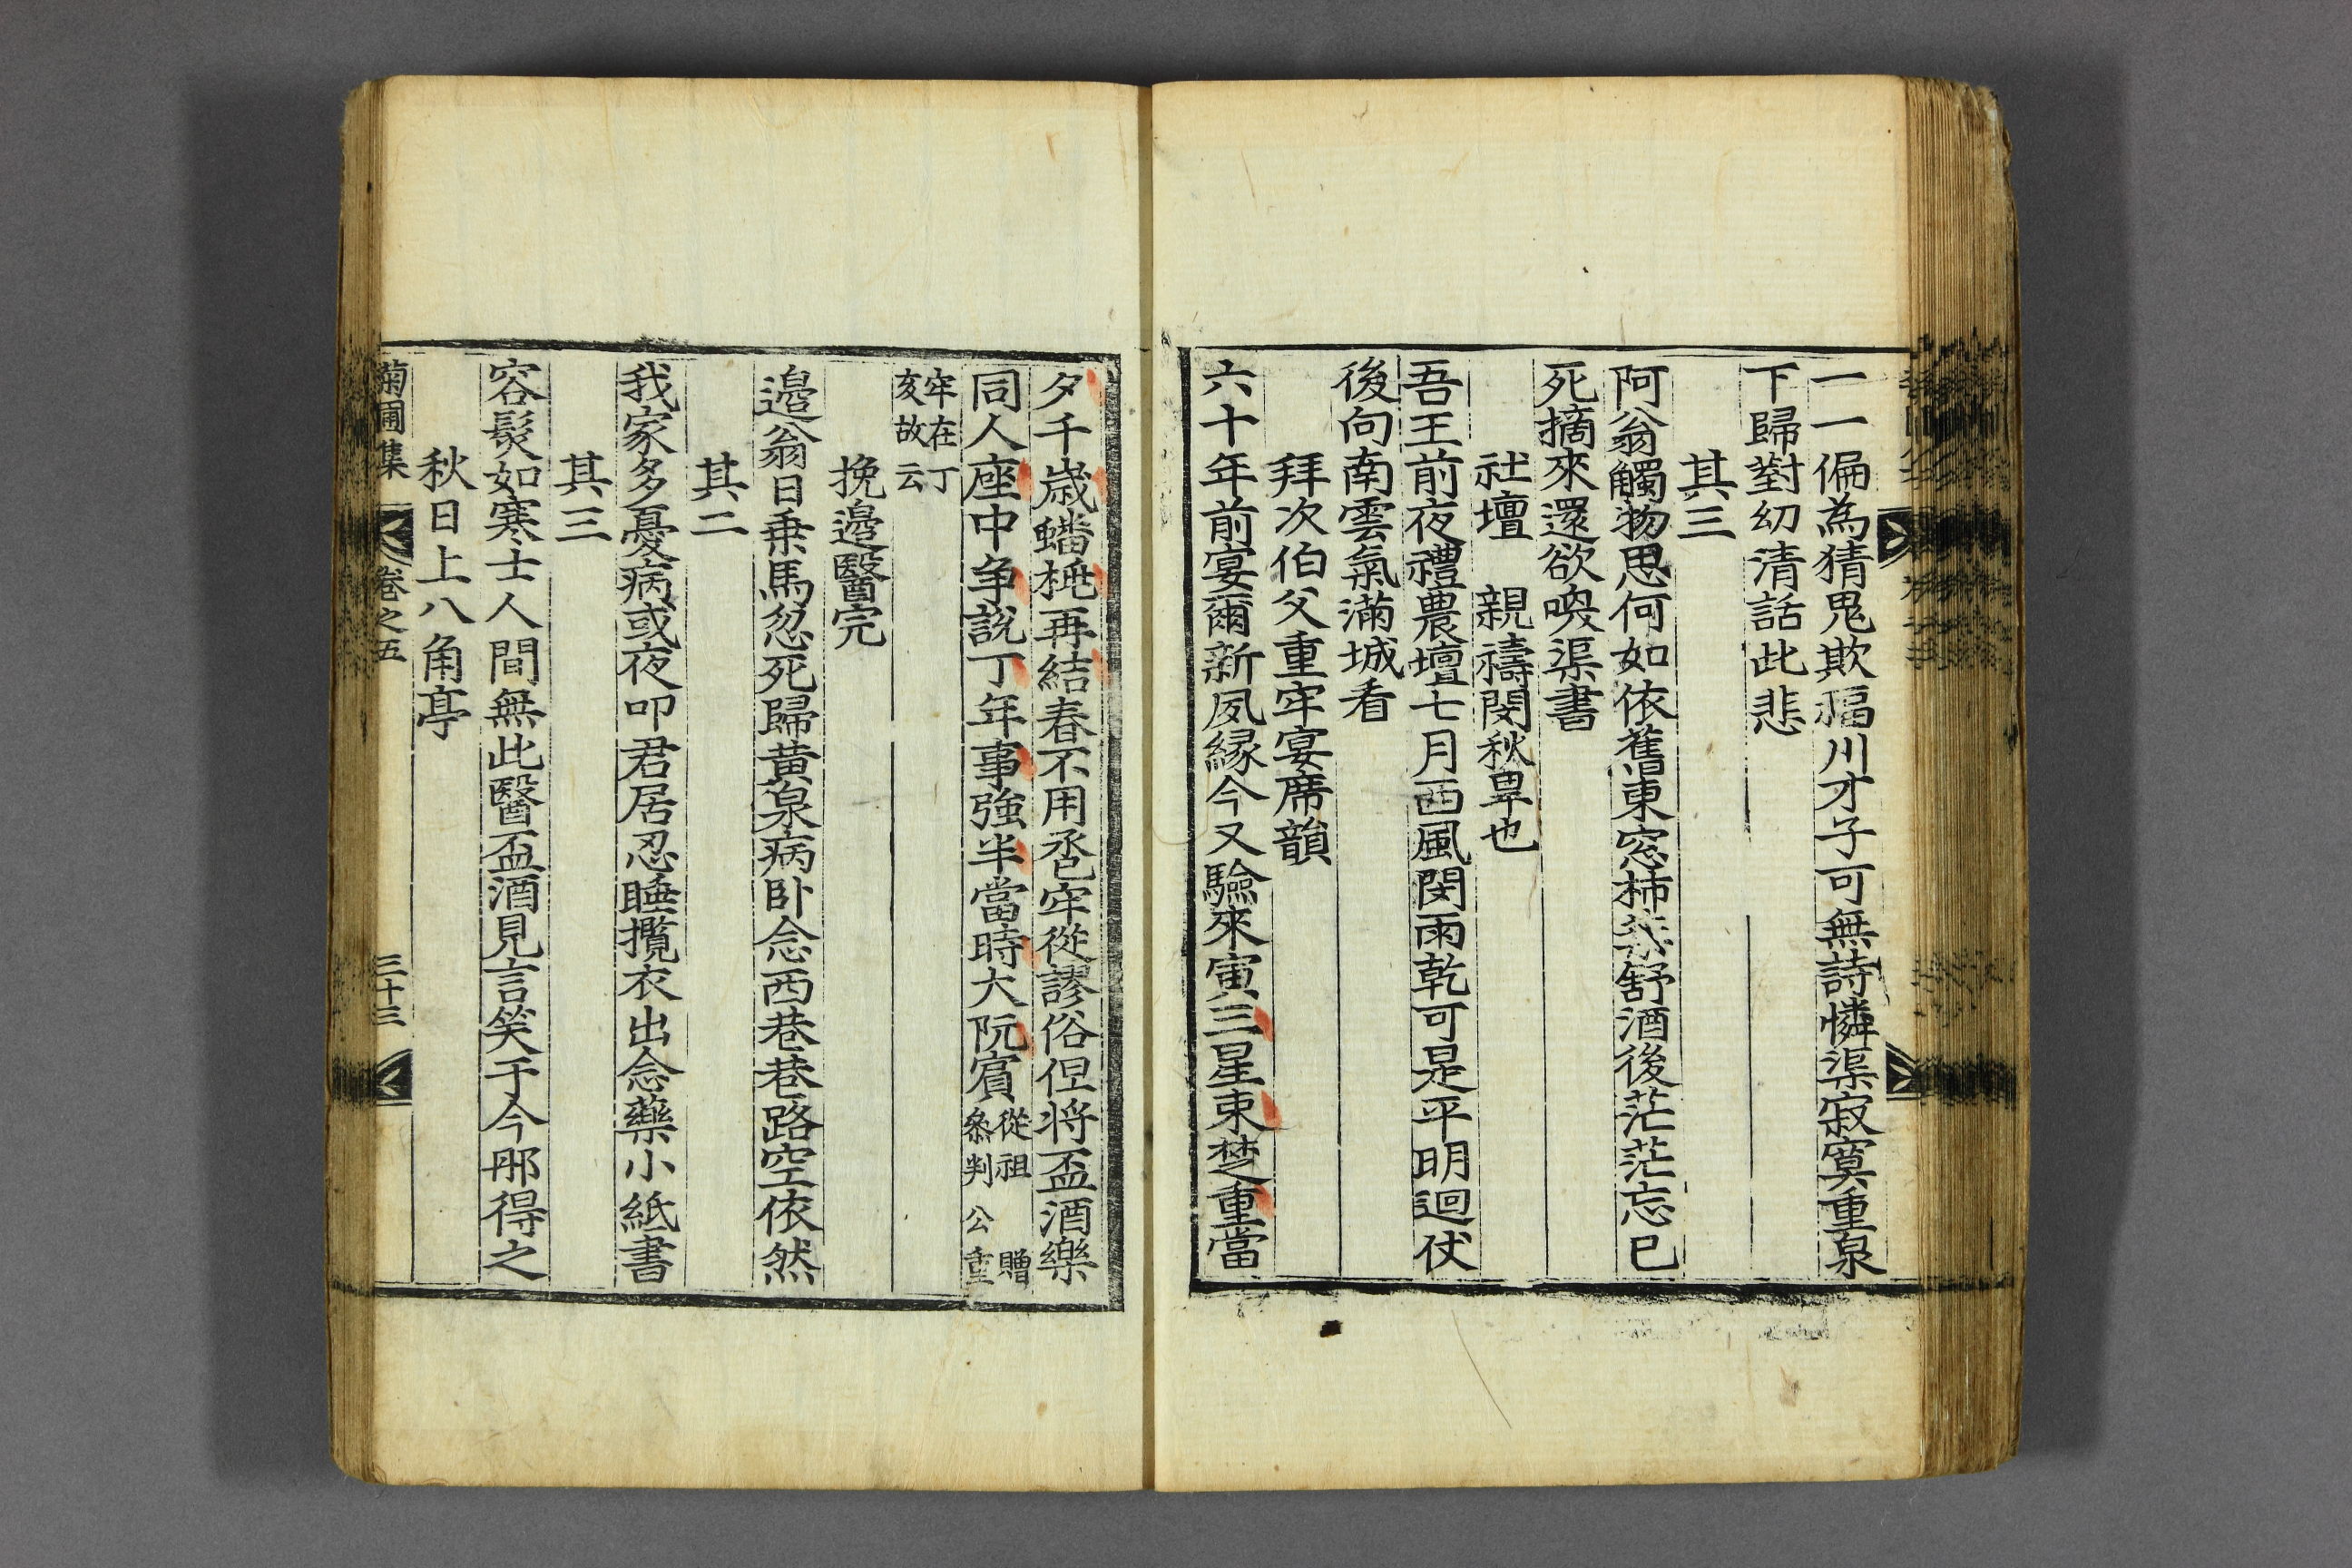 一一偏為猜鬼欺福川才子可無詩憐渠寂寞重泉
下歸對幼清話此悲
其三
阿翁觸物思何如依舊東窓柿 舒酒後茫茫忘已
死摘來還欲喚渠書
社壇 親禱閔秋旱也
吾王前夜禮農壇七月西風閔雨乾可是平明迴伏
後向南雲氣滿城看
拜次伯父重牢宴席韻
六十年前宴爾新夙緣今又驗來寅三星束楚重當
夕千歲蟠桃再結春不用巹牢從謬俗但将盃酒樂
同人座中争說丁年事強半當時大阮賓從祖 贈
叅判 公重
牢在丁
亥故云
挽邉醫完
邉翁日乗馬忽死歸黄泉病卧念西巷巷路空依然
其二
我家多憂病或夜叩君居忍睡攬衣出念藥小紙書
其三
容髮如寒士人間無此醫盃酒見言笑于今那得之
秋日上八角亭
菊圃集 卷之五 三十三